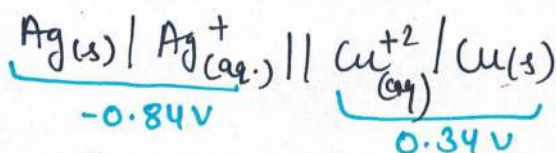 Ag(s) | Ag+(aq.) || Cu+2(aq) / Cu(s)
-0.84V
0.34V